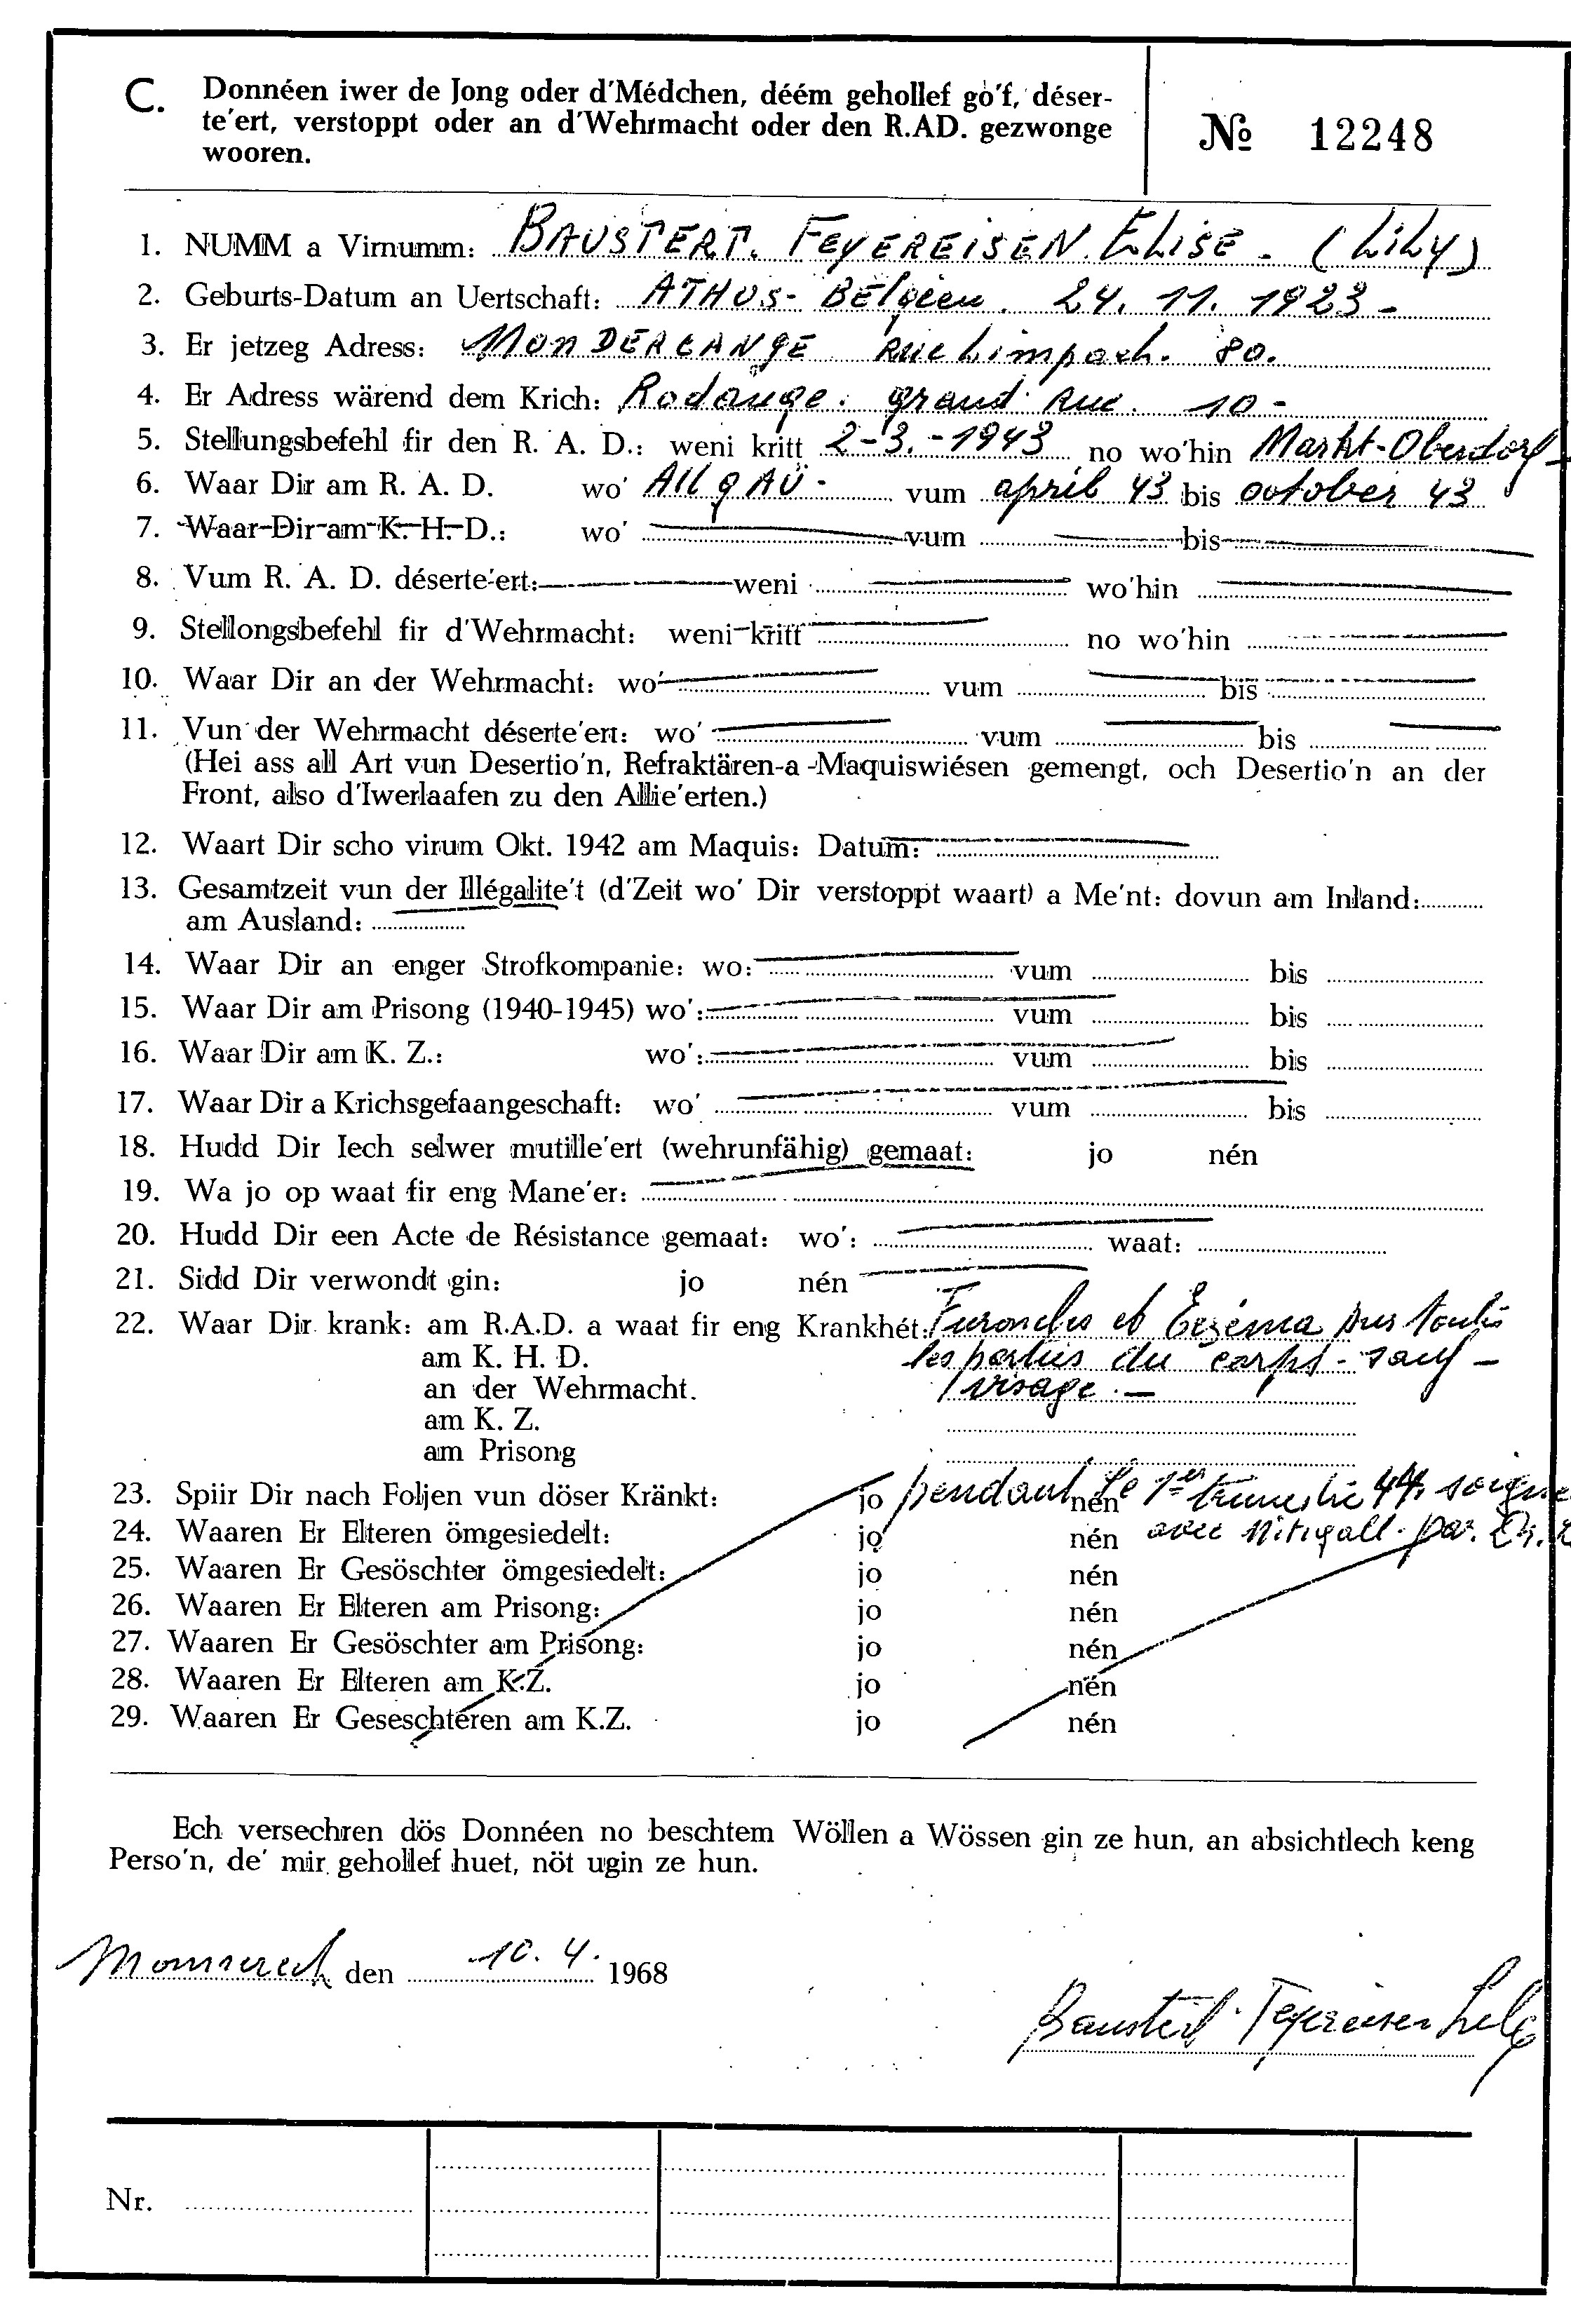 C. Donnéen iwer de Jong oder d'Médchen, déém gehollef go'f, déser-
te'ert, verstoppt oder an d'Wehrmacht oder den R.AD. gezwonge
wooren.
№ 12248
1. NUMM a Virnumm: BAUSTERT. FEYEREISEN. ELISE. (LiLy)
2. Geburts-Datum an Uertschaft: ATHUS- BElgien. 24. 11. 1923-
3. Er jetzeg Adress: MONDERCANGE rue Limpach. 80.
4. Er Adress wärend dem Krich: Rodange. grand Rue. 10-
5. Stellungsbefehl fir den R. A. D.: weni kritt 2-3.-1943 no wo'hin Markt-Oberdorf-
6. Waar Dir am R. A. D. wo' AllgÄU- vum april 43 bis october 43
7. Waar Dir am K. H. D.: wo' vum bis
8. Vum R. A. D. déserte'ert: weni wo'hin
9. Stellongsbefehl fir d'Wehrmacht: weni kritt no wo'hin
10. Waar Dir an der Wehrmacht: wo' vum bis
11. Vun der Wehrmacht déserte'ert: wo' vum bis
(Hei ass all Art vun Desertio'n, Refraktären-a -Maquiswiésen gemengt, och Desertio'n an der
Front, also d'Iwerlaafen zu den Allie'erten.)
12. Waart Dir scho virum Okt. 1942 am Maquis: Datum:
13. Gesamtzeit vun der Illégalite't (d'Zeit wo' Dir verstoppt waart) a Me'nt: dovun am Inland:
am Ausland:
14. Waar Dir an enger Strofkompanie: wo: vum bis
15. Waar Dir am Prisong (1940-1945) wo': vum bis
16. Waar Dir am K. Z.: wo': vum bis
17. Waar Dir a Krichsgefaangeschaft: wo' vum bis
18. Hudd Dir Iech selwer mutille'ert (wehrunfähig) gemaat: jo nén
19. Wa jo op waat fir eng Mane'er:
20. Hudd Dir een Acte de Résistance gemaat: wo': waat:
21. Sidd Dir verwondt gin: jo nén
22. Waar Dir krank: am R.A.D. a waat fir eng Krankhét: Furoncles et Eczéma sur toutes
am K. H. D. les parties du corps - sauf -
an der Wehrmacht. visage.-
am K. Z.
am Prisong
23. Spiir Dir nach Foljen vun döser Kränkt: jo nén pendant le 1er trimestre 44. soigné
24. Waaren Er Elteren ömgesiedelt: jo nén avec Mitigall. par. Dr.
25. Waaren Er Gesöschter ömgesiedelt: jo nén
26. Waaren Er Elteren am Prisong: jo nén
27. Waaren Er Gesöschter am Prisong: jo nén
28. Waaren Er Elteren am K.Z. jo nén
29. Waaren Er Geseschteren am K.Z. jo nén
Ech versechren dös Donnéen no beschtem Wöllen a Wössen gin ze hun, an absichtlech keng
Perso'n, de' mir gehollef huet, nöt ugin ze hun.
Monnerech den 10. 4. 1968
Baustert-Feyereisen Lily
Nr.